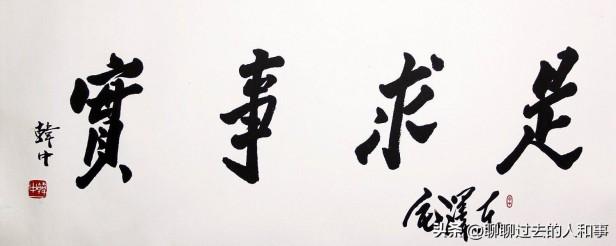 實事求是
毛澤东
韓中
头条 @聊聊过去的人和事